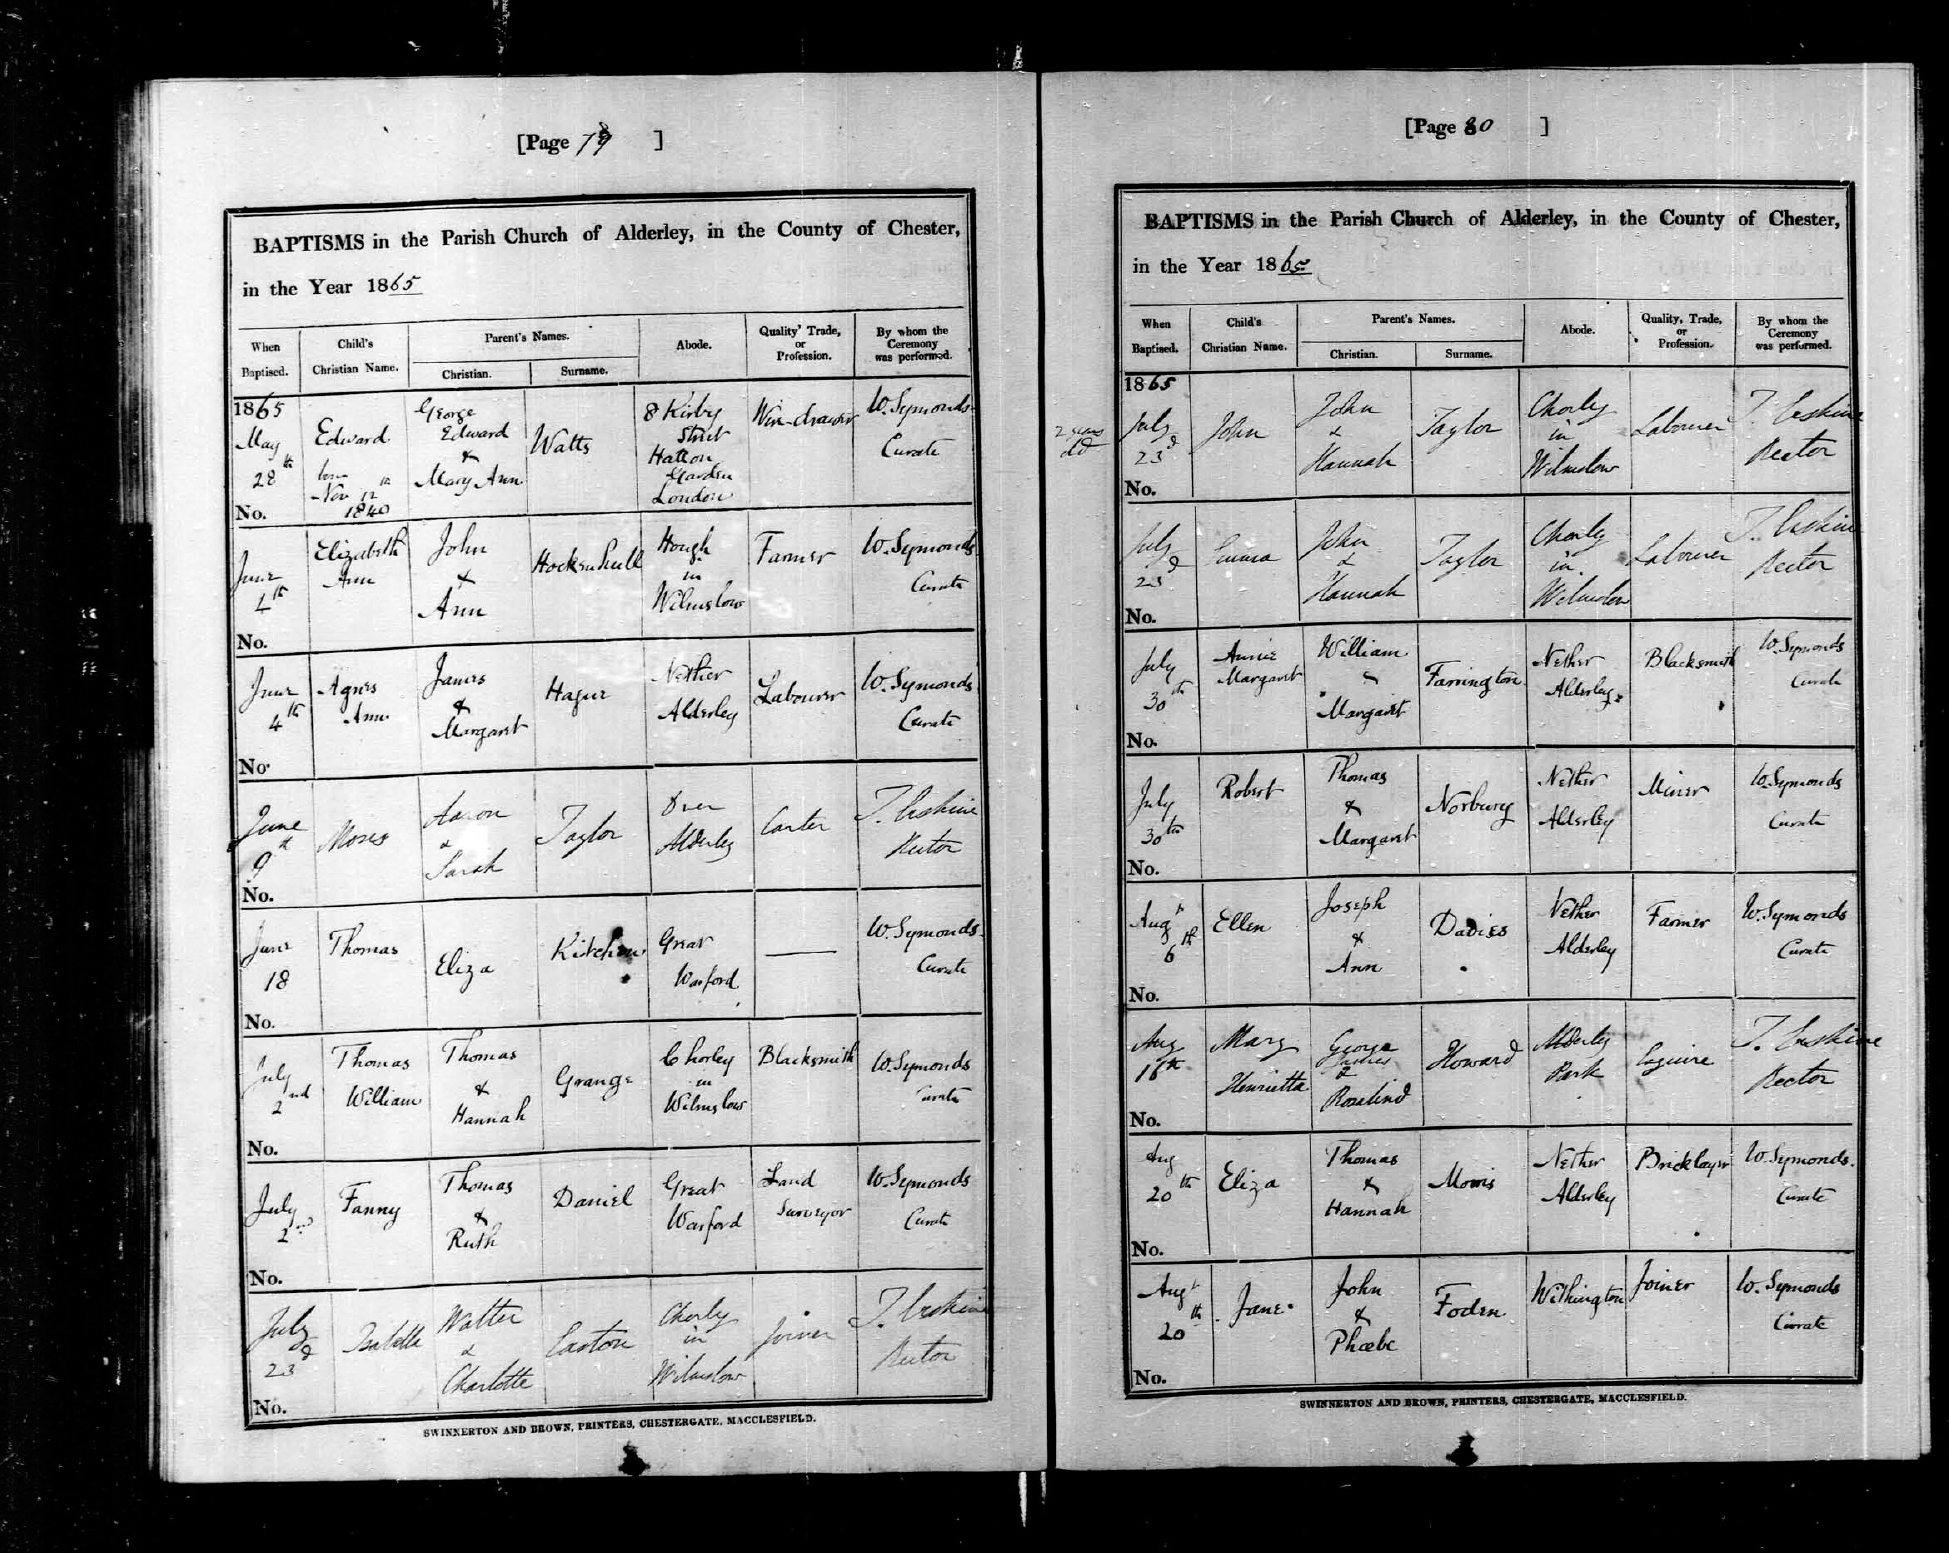 [Page 79 ]
BAPTISMS in the Parish Church of Alderley, in the County of Chester,
in the Year 1865
When Baptised. Child's Christian Name. Parent's Names. Christian. Surname. Abode. Quality' Trade, or Profession. By whom the Ceremony was performed.
1865 May 28th No. Edward born Nov 12th 1840 George Edward & Mary Ann Watts 8 Kirby Street Hatton Garden London Wire-drawer W. Symonds Curate
June 4th No. Elizabeth Ann John & Ann Hockenhull Hough in Wilmslow Farmer W. Symonds Curate
June 4th No. Agnes Ann James & Margaret Hague Nether Alderley Labourer W. Symonds Curate
June 9th No. Moses Aaron & Sarah Taylor Over Alderley Carter T. Erskine Rector
June 18 No. Thomas Eliza Kitchen Great Warford — W. Symonds. Curate
July 2nd No. Thomas William Thomas & Hannah Grange Chorley in Wilmslow Blacksmith W. Symonds Curate
July 2nd No. Fanny Thomas & Ruth Daniel Great Warford Land Surveyor W. Symonds Curate
July 23d No. Isabella Walter & Charlotte Easton Chorley in Wilmslow Joiner T. Erskine Rector
SWINNERTON AND BROWN, PRINTERS, CHESTERGATE, MACCLESFIELD.
[Page 80 ]
BAPTISMS in the Parish Church of Alderley, in the County of Chester,
in the Year 1865
When Baptised. Child's Christian Name. Parent's Names. Christian. Surname. Abode. Quality, Trade, or Profession. By whom the Ceremony was performed.
2 years old
1865 July 23d No. John John & Hannah Taylor Chorley in Wilmslow Labourer T. Erskine Rector
July 23d No. Emma John & Hannah Taylor Chorley in Wilmslow Labourer T. Erskine Rector
July 30th No. Annie Margaret William & Margaret Farrington Nether Alderley Blacksmith W. Symonds Curate
July 30th No. Robert Thomas & Margaret Norbury Nether Alderley Miner W. Symonds Curate
Augt 6th No. Ellen Joseph & Ann Davies Nether Alderley Farmer W. Symonds Curate
Aug 16th No. Mary Henrietta George James & Rosalind Howard Alderley Park Esquire T. Erskine Rector
Aug 20th No. Eliza Thomas & Hannah Morris Nether Alderley Bricklayer W. Symonds. Curate
Augt 20th No. Jane John & Phœbe Foden Withington Joiner W. Symonds Curate
SWINNERTON AND BROWN, PRINTERS, CHESTERGATE, MACCLESFIELD.